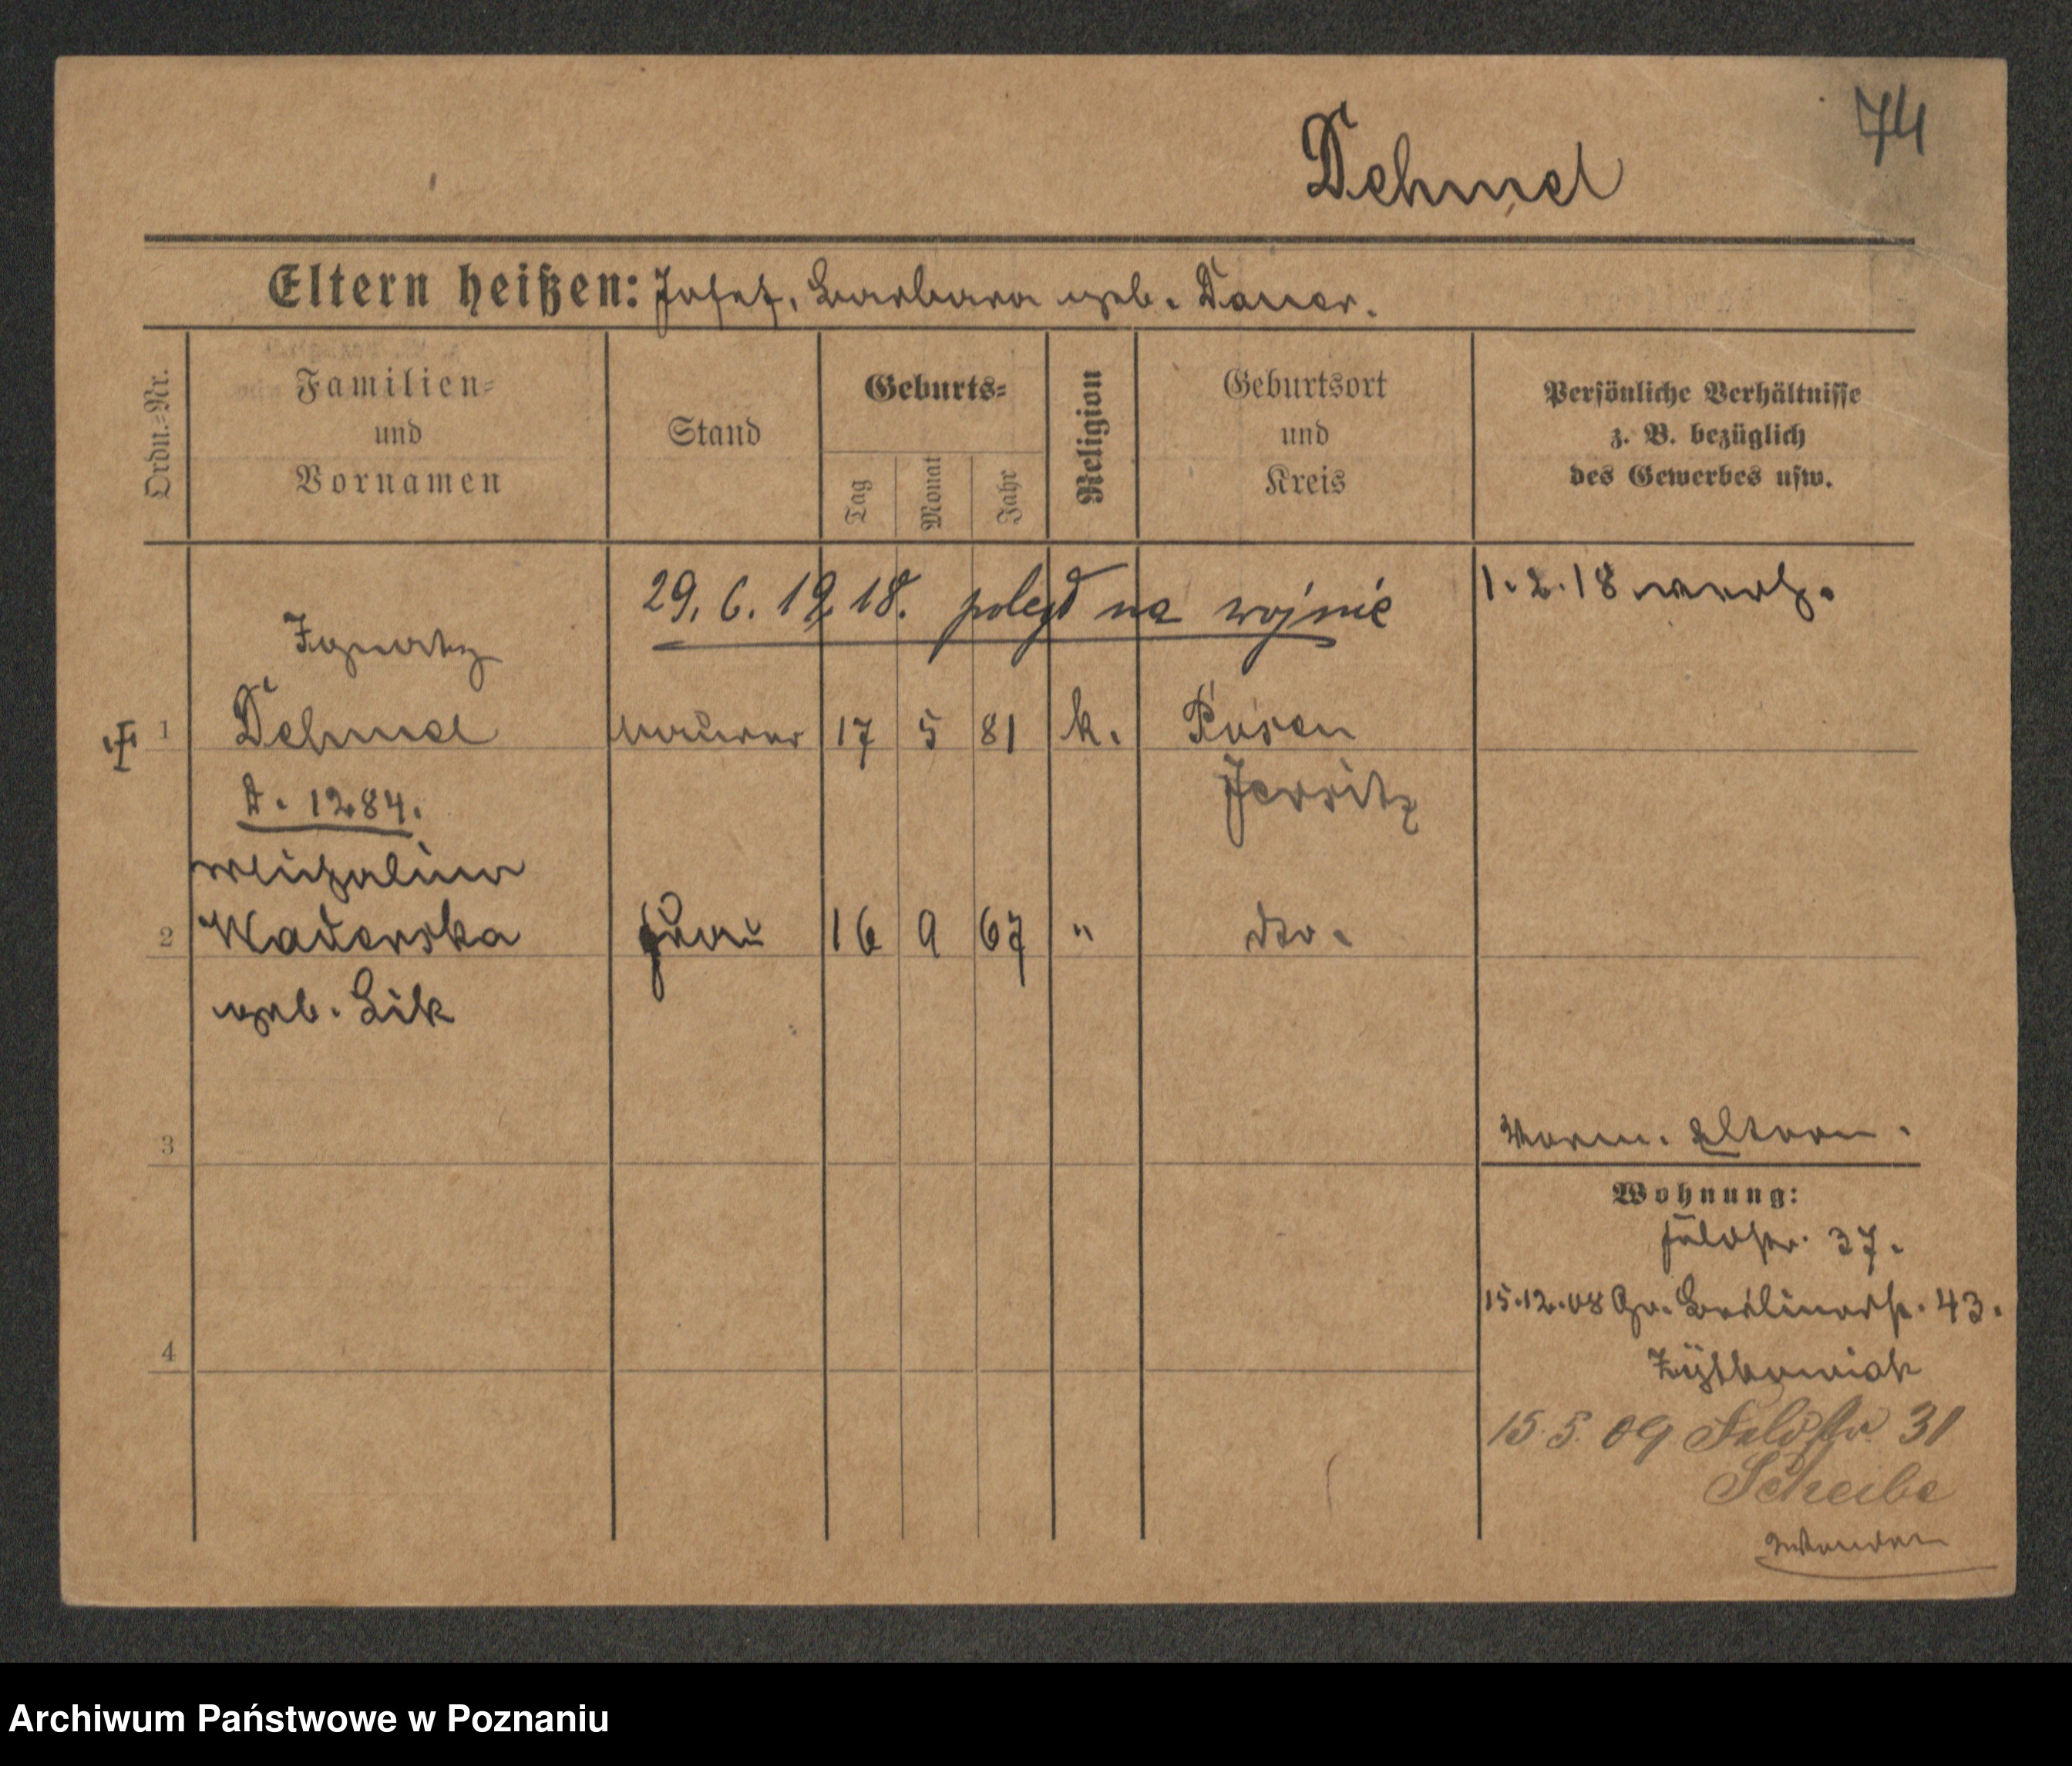 74
Dehmel
Eltern heißen: Josef, Barbara geb. Dauer.
Ordn.-Nr.
Familien- und Vornamen
Stand
Geburts-
Tag
Monat
Jahr
Religion
Geburtsort und Kreis
Persönliche Verhältnisse z. B. bezüglich des Gewerbes usw.
29. 6. 1918. poległ na wojnie
1.2.18
Ignatz
1 Dehmel Maurer 17 5 81 k. Posen
Jersitz
D. 1284.
Michalina
2 Waderska Frau 16 9 67 " dto.
geb. Lik
3
Eltern.
Wohnung:
Feldstr. 37.
15.12.08 Gr. Berlinerstr. 43.
15.5.09 Feldstr. 31
Scheibe
4
Archiwum Państwowe w Poznaniu